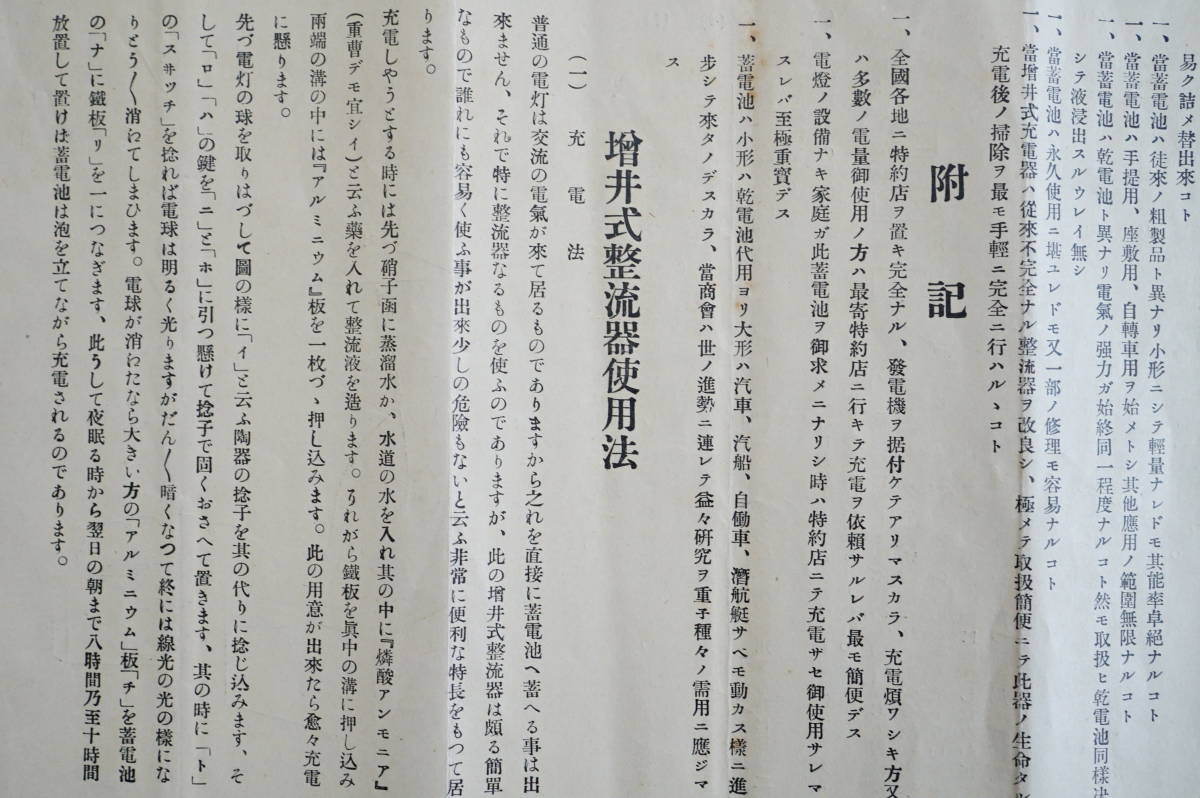 易ク詰メ替出來コト
一、當蓄電池ハ徒來ノ粗製品ト異ナリ小形ニシテ輕量ナレドモ其能率卓絕ナルコト
一、當蓄電池ハ手提用、座敷用、自轉車用ヲ始メトシ其他應用ノ範圍無限ナルコト
一、當蓄電池ハ乾電池ト異ナリ電氣ノ强力ガ始終同一程度ナルコト然モ取扱ヒ乾電池同樣决
シテ液浸出スルウレイ無シ
一、當蓄電池ハ永久使用ニ堪ユレドモ又一部ノ修理モ容易ナルコト
一、當增井式充電器ハ從來不完全ナル整流器ヲ改良シ、極メテ取扱簡便ニテ此器ノ生命タル
充電後ノ掃除ヲ最モ手輕ニ完全ニ行ハルヽコト
附記
一、全國各地ニ特約店ヲ置キ完全ナル、發電機ヲ据付ケテアリマスカラ、充電煩ワシキ方又
ハ多數ノ電量御使用ノ方ハ最寄特約店ニ行キテ充電ヲ依賴サルレバ最モ簡便デス
一、電燈ノ設備ナキ家庭ガ此蓄電池ヲ御求メニナリシ時ハ特約店ニテ充電サセ御使用サレマ
スレバ至極重寶デス
一、蓄電池ハ小形ハ乾電池代用ヨリ大形ハ汽車、汽船、自働車、潛航艇サベモ動カス樣ニ進
步シテ來タノデスカラ、當商會ハ世ノ進勢ニ連レテ益々硏究ヲ重子種々ノ需用ニ應ジマ
ス
增井式整流器使用法
(一) 充電法
普通の電灯は交流の電氣が來て居るものでありますから之れを直接に蓄電池へ蓄へる事は出
來ません、それで特に整流器なるものを使ふのでありますが、此の增井式整流器は頗る簡單
なもので誰れにも容易く使ふ事が出來少しの危險もないと云ふ非常に便利な特長をもつて居
ります。
充電しやうとする時には先づ硝子函に蒸溜水か、水道の水を入れ其の中に『燐酸アンモニア』
(重曹デモ宜シイ)と云ふ藥を入れて整流液を造ります。それがら鐵板を眞中の溝に押し込み
兩端の溝の中には『アルミニウム』板を一枚づゝ押し込みます。此の用意が出來たら愈々充電
に懸ります。
先づ電灯の球を取りはづして圖の樣に「イ」と云ふ陶器の捻子を其の代りに捻じ込みます、そ
して「ロ」「ハ」の鍵を「ニ」と「ホ」に引つ懸けて捻子で固くおさへて置きます、其の時に「ト」
の「スヰッチ」を捻れば電球は明るく光りますがだん〱暗くなつて終には線光の光の樣にな
りとう〱消ねてしまひます。電球が消ねたなら大きい方の「アルミニウム」板「チ」を蓄電池
の「ナ」に鐵板「リ」を一につなぎます、此うして夜眠る時から翌日の朝まで八時間乃至十時間
放置して置けば蓄電池は泡を立てながら充電されるのであります。